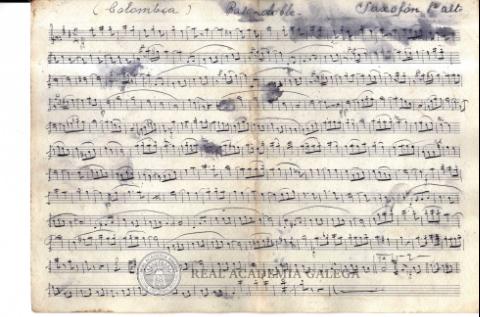 (Colombia) Pasodoble. Saxofón 1º alto
REAL ACADEMIA GALEGA